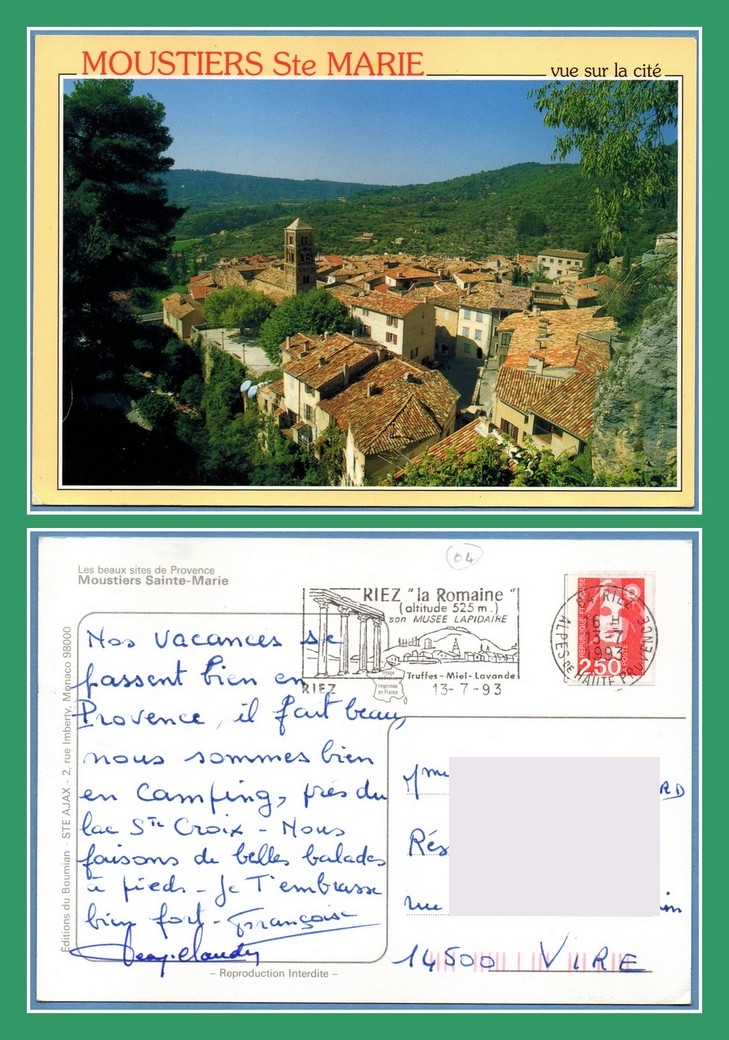 MOUSTIERS Ste MARIE
vue sur la cité
04
Les beaux sites de Provence
Moustiers Sainte-Marie
RIEZ "la Romaine"
(altitude 525 m.)
son MUSÉE LAPIDAIRE
Truffes-Miel-Lavande
RIEZ
13-7-93
04 RIEZ
13-7
1993
ALPES DE HAUTE PROVENCE
2,50
Nos vacances se
passent bien en
Provence, il fait beau,
nous sommes bien
en camping, près du
lac Ste Croix - Nous
faisons de belles balades
à pieds - Je T'embrasse
bien fort - Françoise
Jean-Claude
Mme
RD
Rés
rue
in
14500 VIRE
Éditions du Boumian - STE AJAX - 2, rue Imberty, Monaco 98000
– Reproduction Interdite –